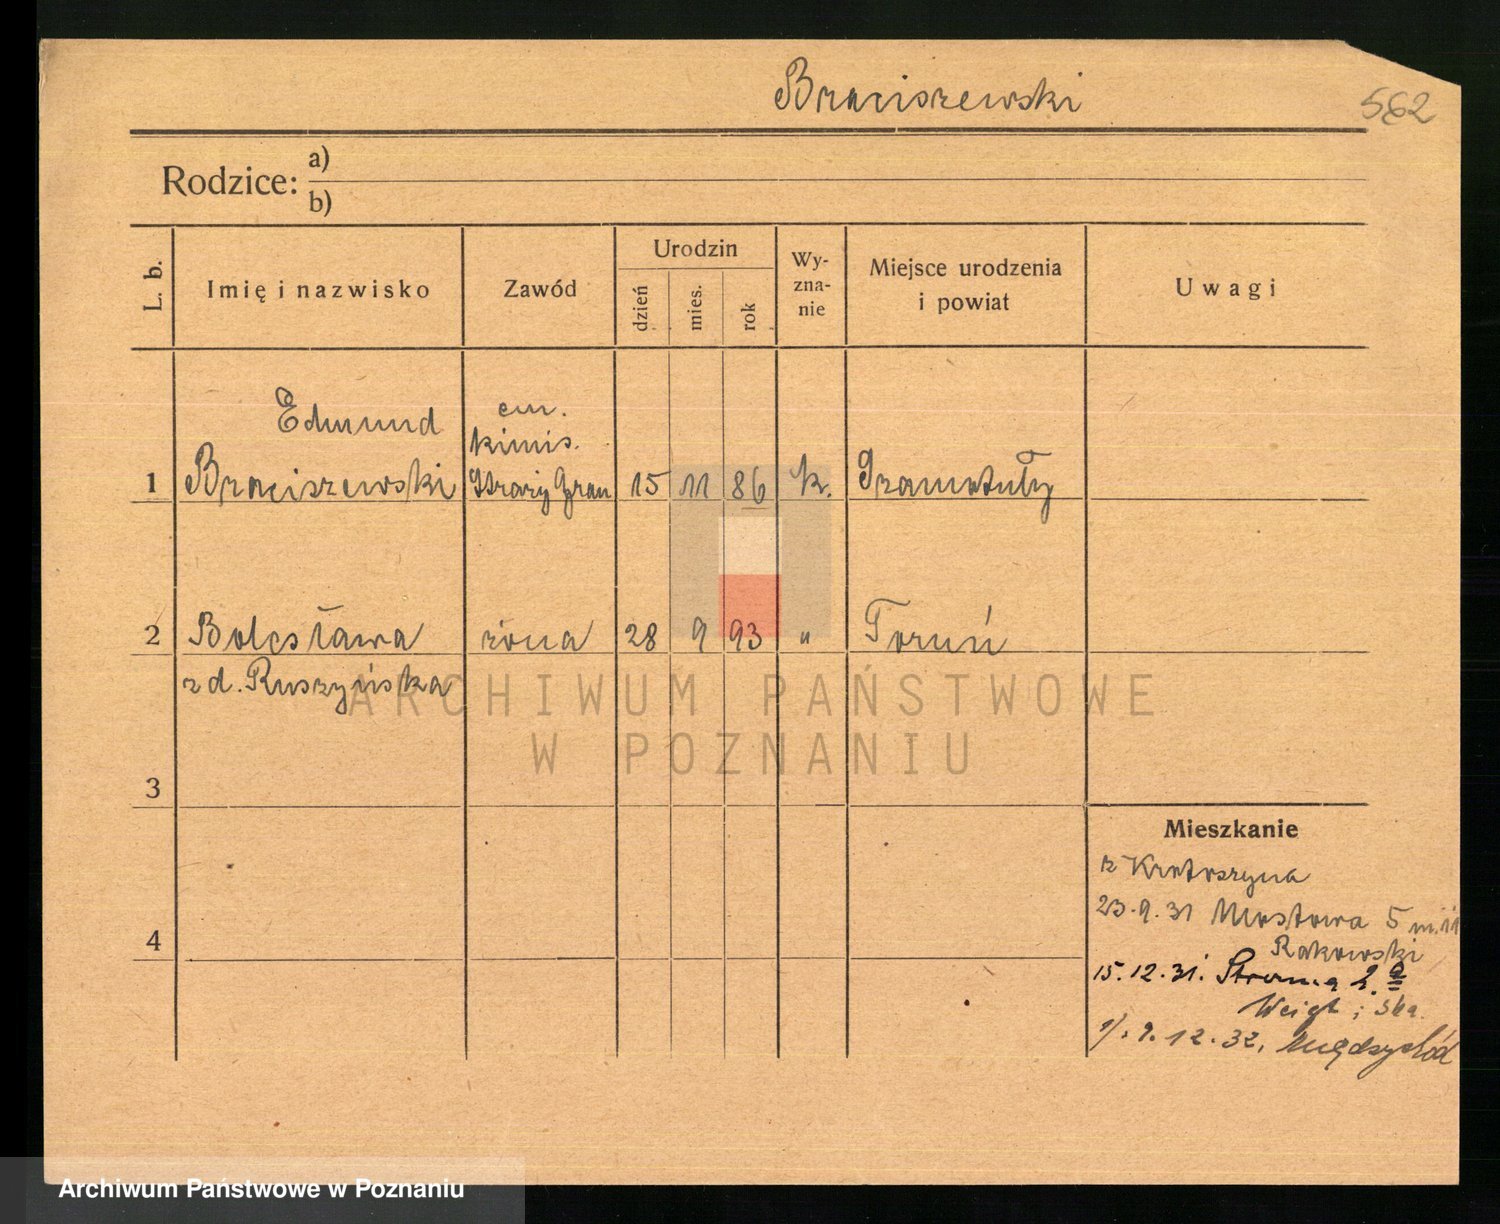 Braciszewski
562
Rodzice: a)
b)
L. b.
Imię i nazwisko
Zawód
Urodzin
dzień
mies.
rok
Wy-
zna-
nie
Miejsce urodzenia
i powiat
Uwagi
Edmund
em.
komis.
1 Braciszewski Straży Gran 15 11 86 k.
2 Bolesława żona 28 9 93 " Toruń
z d. Ruszyńska
ARCHIWUM PAŃSTWOWE
W POZNANIU
3
Mieszkanie
z Krotoszyna
4
23.9.31 Mostowa 5 m. 11
Rakowski
15.12.31. Stroma 2.
Weigt
1/.9.12.32. Międzychód
Archiwum Państwowe w Poznaniu